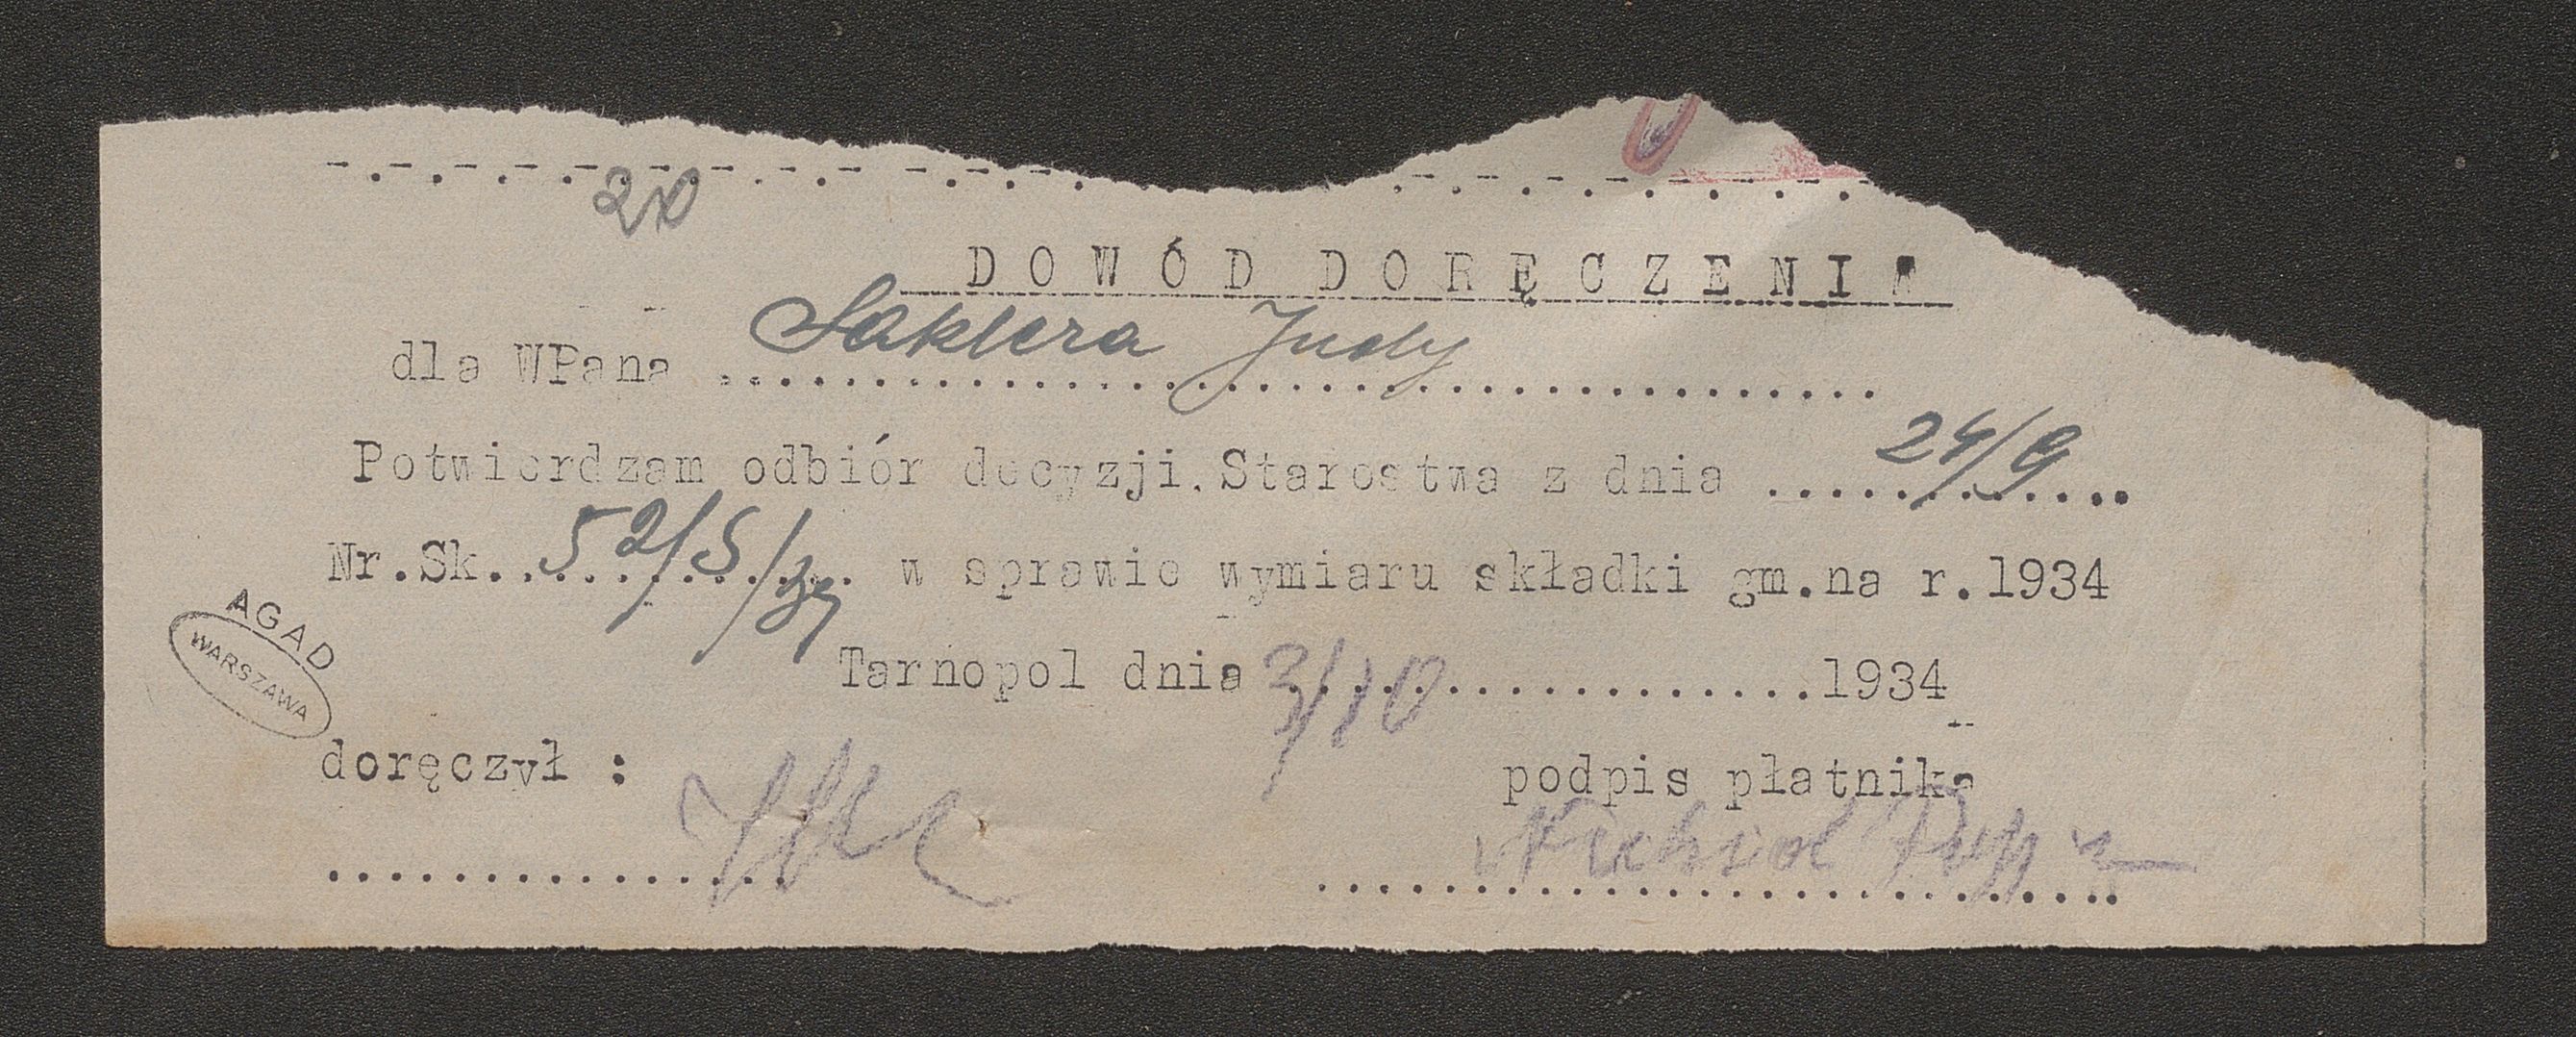 20
DOWÓD DORĘCZENIA
dla WPana Saklera Judy
Potwierdzam odbiór decyzji. Starostwa z dnia 24/9
Nr.Sk. 52/5/34 w sprawie wymiaru składki gm.na r.1934
AGAD
WARSZAWA
Tarnopol dnia 3/10 1934
doręczył :
podpis płatnika